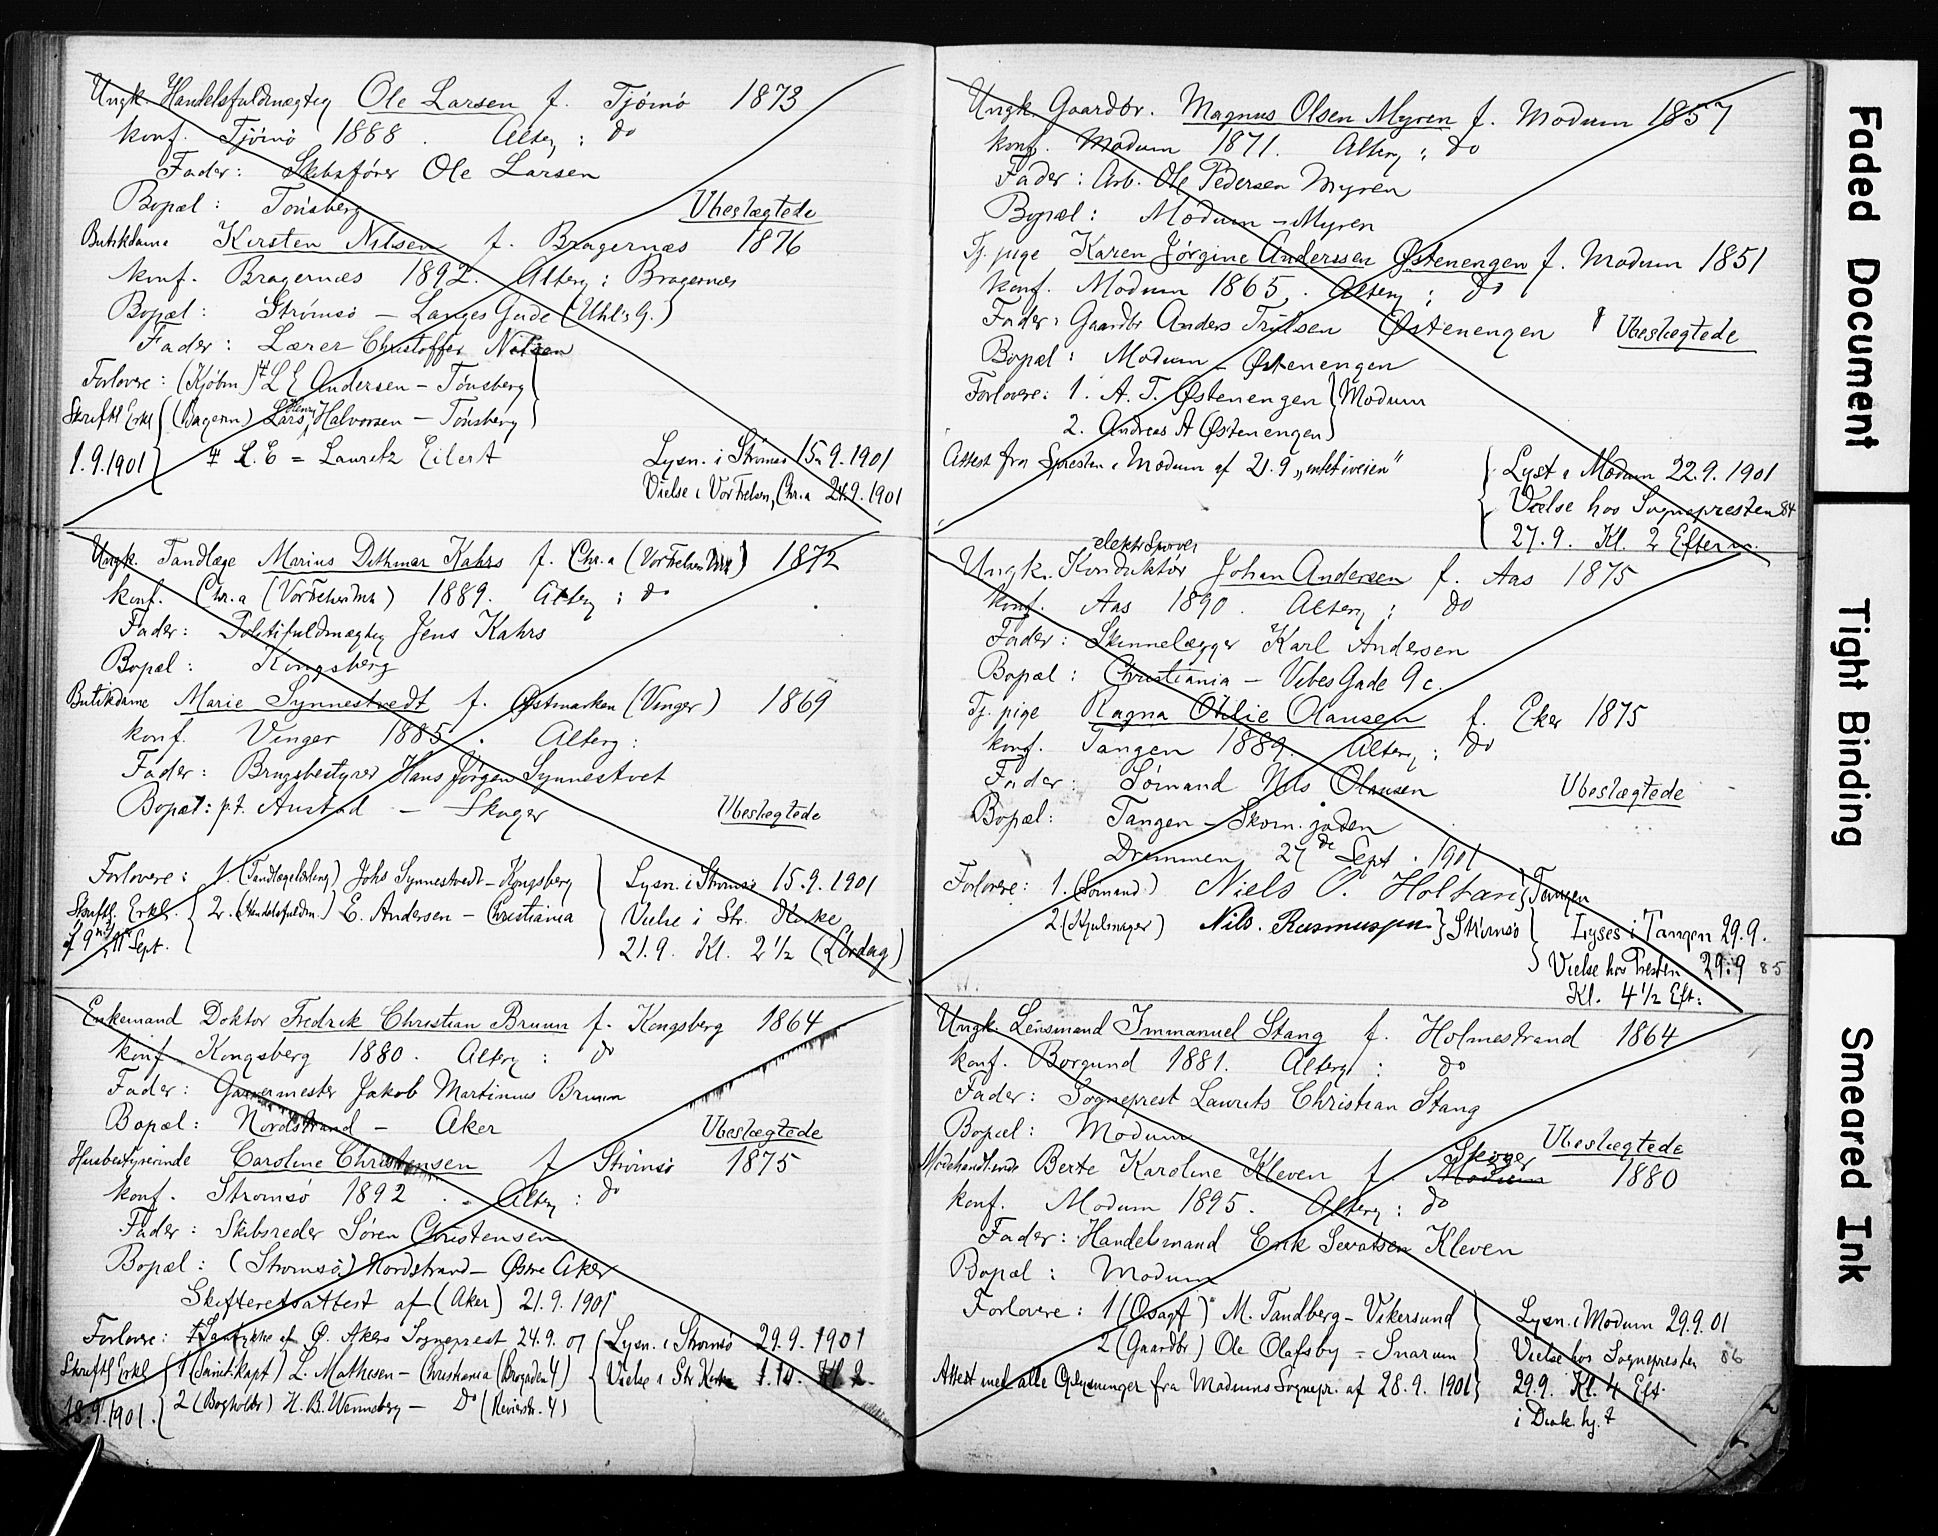 Ungk. Handelsfuldmægtig Ole Larsen f. Tjömö 1873
konf. Tjömö 1888. Alterg: do
Fader: Skibsförer Ole Larsen
Bopæl: Tönsberg Ubeslægtede
Butikdame Kirsten Nilsen f. Bragernæs 1876
konf. Bragernæs 1892. Alterg: Bragernæs
Bopæl: Strömsö – Langes Gade (Uhl's G.)
Fader: Lærer Christoffer Nilsen
Forlovere: (Kjöbm) # L E Andersen – Tönsberg
Skriftl Erkl (Bagerm) Lars Henry Halvorsen – Tönsberg
1.9.1901 # L. E = Lauritz Eilert Lysn. i Strömsö 15.9.1901
Vielse i Vor Frelsers, Chr.a 24.9.1901
Ungk. Tandlæge Marius Dithmar Kahrs f. Chr.a (Vor Frelsers Mnh) 1872
konf. Chr.a (Vor Frelsers Mnh) 1889. Alterg: do
Fader: Politifuldmægtig Jens Kahrs
Bopæl: Kongsberg
Butikdame Marie Synnestvedt f. Østmarken (Vinger) 1869
konf. Vinger 1885. Alterg:
Fader: Brugsbestyrer Hans Jörgen Synnestvet
Bopæl: p.t. Austad – Skoger Ubeslægtede
Forlovere: 1. (Tandlægelærling) Johs Synnestvedt – Kongsberg Lysn. i Strömsö 15.9.1901
Skriftl. Erkl. 2. (Handelsfuldm.) E. Andersen – Christiania Vielse i Str. Kirke
f 9 11 Sept. 21.9. Kl. 2 1/2 (Lördag)
Enkemand Doktor Fredrik Christian Bruun f. Kongsberg 1864
konf Kongsberg 1880. Alterg: do
Fader: Garvermester Jakob Martinius Bruun
Bopæl: Nordstrand – Aker Ubeslægtede
Husbestyrerinde Caroline Christensen f Strömsö 1875
konf. Strömsö 1892. Alterg: do
Fader: Skibsreder Sören Christensen
Bopæl: (Strömsö) Nordstrand – Østre Aker
Skifteretsattest af (Aker) 21.9.1901
Forlovere: # Samtykke af Ø. Akers Sogneprest 24.9.01 Lysn. i Strömsö 29.9.1901
Skriftl Erkl 1 (Sanit. kapt) L. Mathesen – Christiania (Brogaden 4) Vielse i Str Kirke 1.10. Kl 2.
18.9.1901. 2 (Bogholdr) H. B. Wenneberg – Do (Revierstr. 4)
Ungk Gaardbr. Magnus Olsen Myren f. Modum 1857
konf. Modum 1871. Alterg: do
Fader: Arb. Ole Pedersen Myren
Bopæl: Modum – Myren
Tj. pige Karen Jörgine Anderssen Østenengen f. Modum 1851
konf. Modum 1865. Alterg: do
Fader: Gaardbr Anders Trulsen Østenengen Ubeslægtede
Bopæl: Modum – Østenengen
Forlovere: 1. A. T. Østenengen Modum
2. Andreas A Østenengen
Attest fra Spresten i Modum af 21.9 „intet iveien" Lyst i Modum 22.9.1901
Vielse hos Sognepresten 84
27.9. Kl. 2 Efterm.
elektr Sporvei
Ungk. Konduktör Johan Andersen f. Aas 1875
konf. Aas 1890. Alterg: do
Fader: Skinnelægger Karl Andersen
Bopæl: Christiania – Vibes Gade 9 c.
Tj. pige Ragna Otilie Olausen f. Eker 1875
konf. Tangen 1889. Alterg: do
Fader: Sömand Nils Olausen Ubeslægtede
Bopæl: Tangen – Skom. gaden
Drammen 27de Sept. 1901
Forlovere: 1. (Sömand.) Niels O. Holtan Tangen
2. (Hjulmager) Nils. Rasmussen Strömsö Lyses i Tangen 29.9.
Vielse hos Presten 29.9 85
Kl. 4 1/2 Eft.
Ungk. Lensmand Immanuel Stang f. Holmestrand 1864
konf. Borgund 1881. Alterg: do
Fader: Sogneprest Laurits Christian Stang
Bopæl: Modum Ubeslægtede
Modehandlende Berte Karoline Kleven f. Modum Skoger 1880
konf. Modum 1895. Alterg: do
Fader: Handelsmand Erik Sevatsen Kleven
Bopæl: Modum
Forlovere: 1 (Osagf) M. Tandberg – Vikersund Lysn. i Modum 29.9.01
2 (Gaardbr) Ole Olafsby – Snarum Vielse hos Sognepresten 86
Attest med alle Oplysninger fra Modums Sognepr. af 28.9.1901 29.9. Kl. 4 Eft.
i Drak. hj.
Faded Document
Tight Binding
Smeared Ink